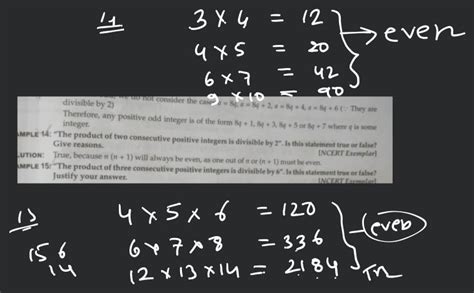 14
3 × 4 = 12
4 × 5 = 20
6 × 7 = 42
9 × 10 = 90
→ even
do not consider the case a = 8q, a = 8q + 2, a = 8q + 4, a = 8q + 6 (∵ They are
divisible by 2)
Therefore, any positive odd integer is of the form 8q + 1, 8q + 3, 8q + 5 or 8q + 7 where q is some
integer.
AMPLE 14: "The product of two consecutive positive integers is divisible by 2". Is this statement true or false?
Give reasons. [NCERT Exemplar]
LUTION: True, because n (n + 1) will always be even, as one out of n or (n + 1) must be even.
AMPLE 15: "The product of three consecutive positive integers is divisible by 6". Is this statement true or false?
Justify your answer. [NCERT Exemplar]
4 × 5 × 6 = 120
6 × 7 × 8 = 336
12 × 13 × 14 = 2184
even
15 6
14